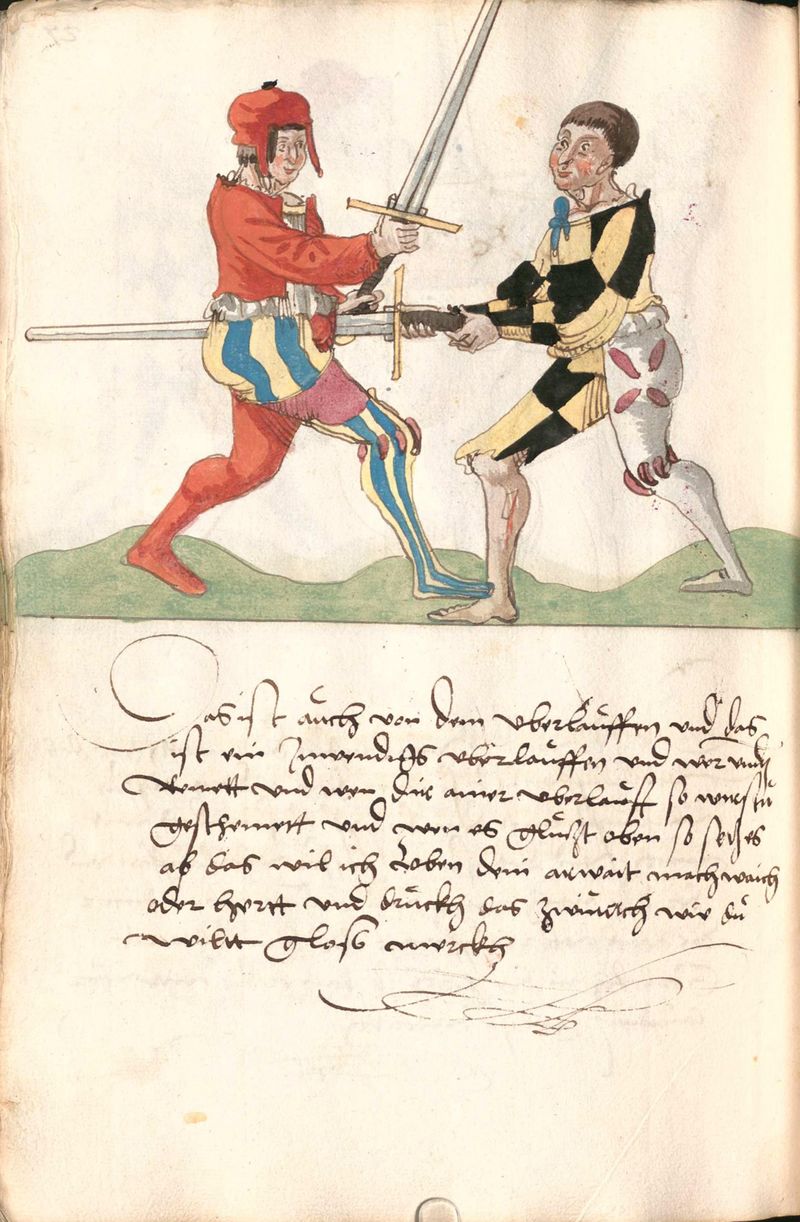 Das ist auch von dem vberlauffen vnd das
ist ein Inwendigs vberlauffen vnd wer vnden
Remett vnd wen dur ainer vberlauft so wurstu
geschemett vnd wen es glutzt oben so setz es
ab das wil ich Loben dein arwait mach waich
oder hertt vnd druckh das zwiuach wie du
wiltt glosß merckh